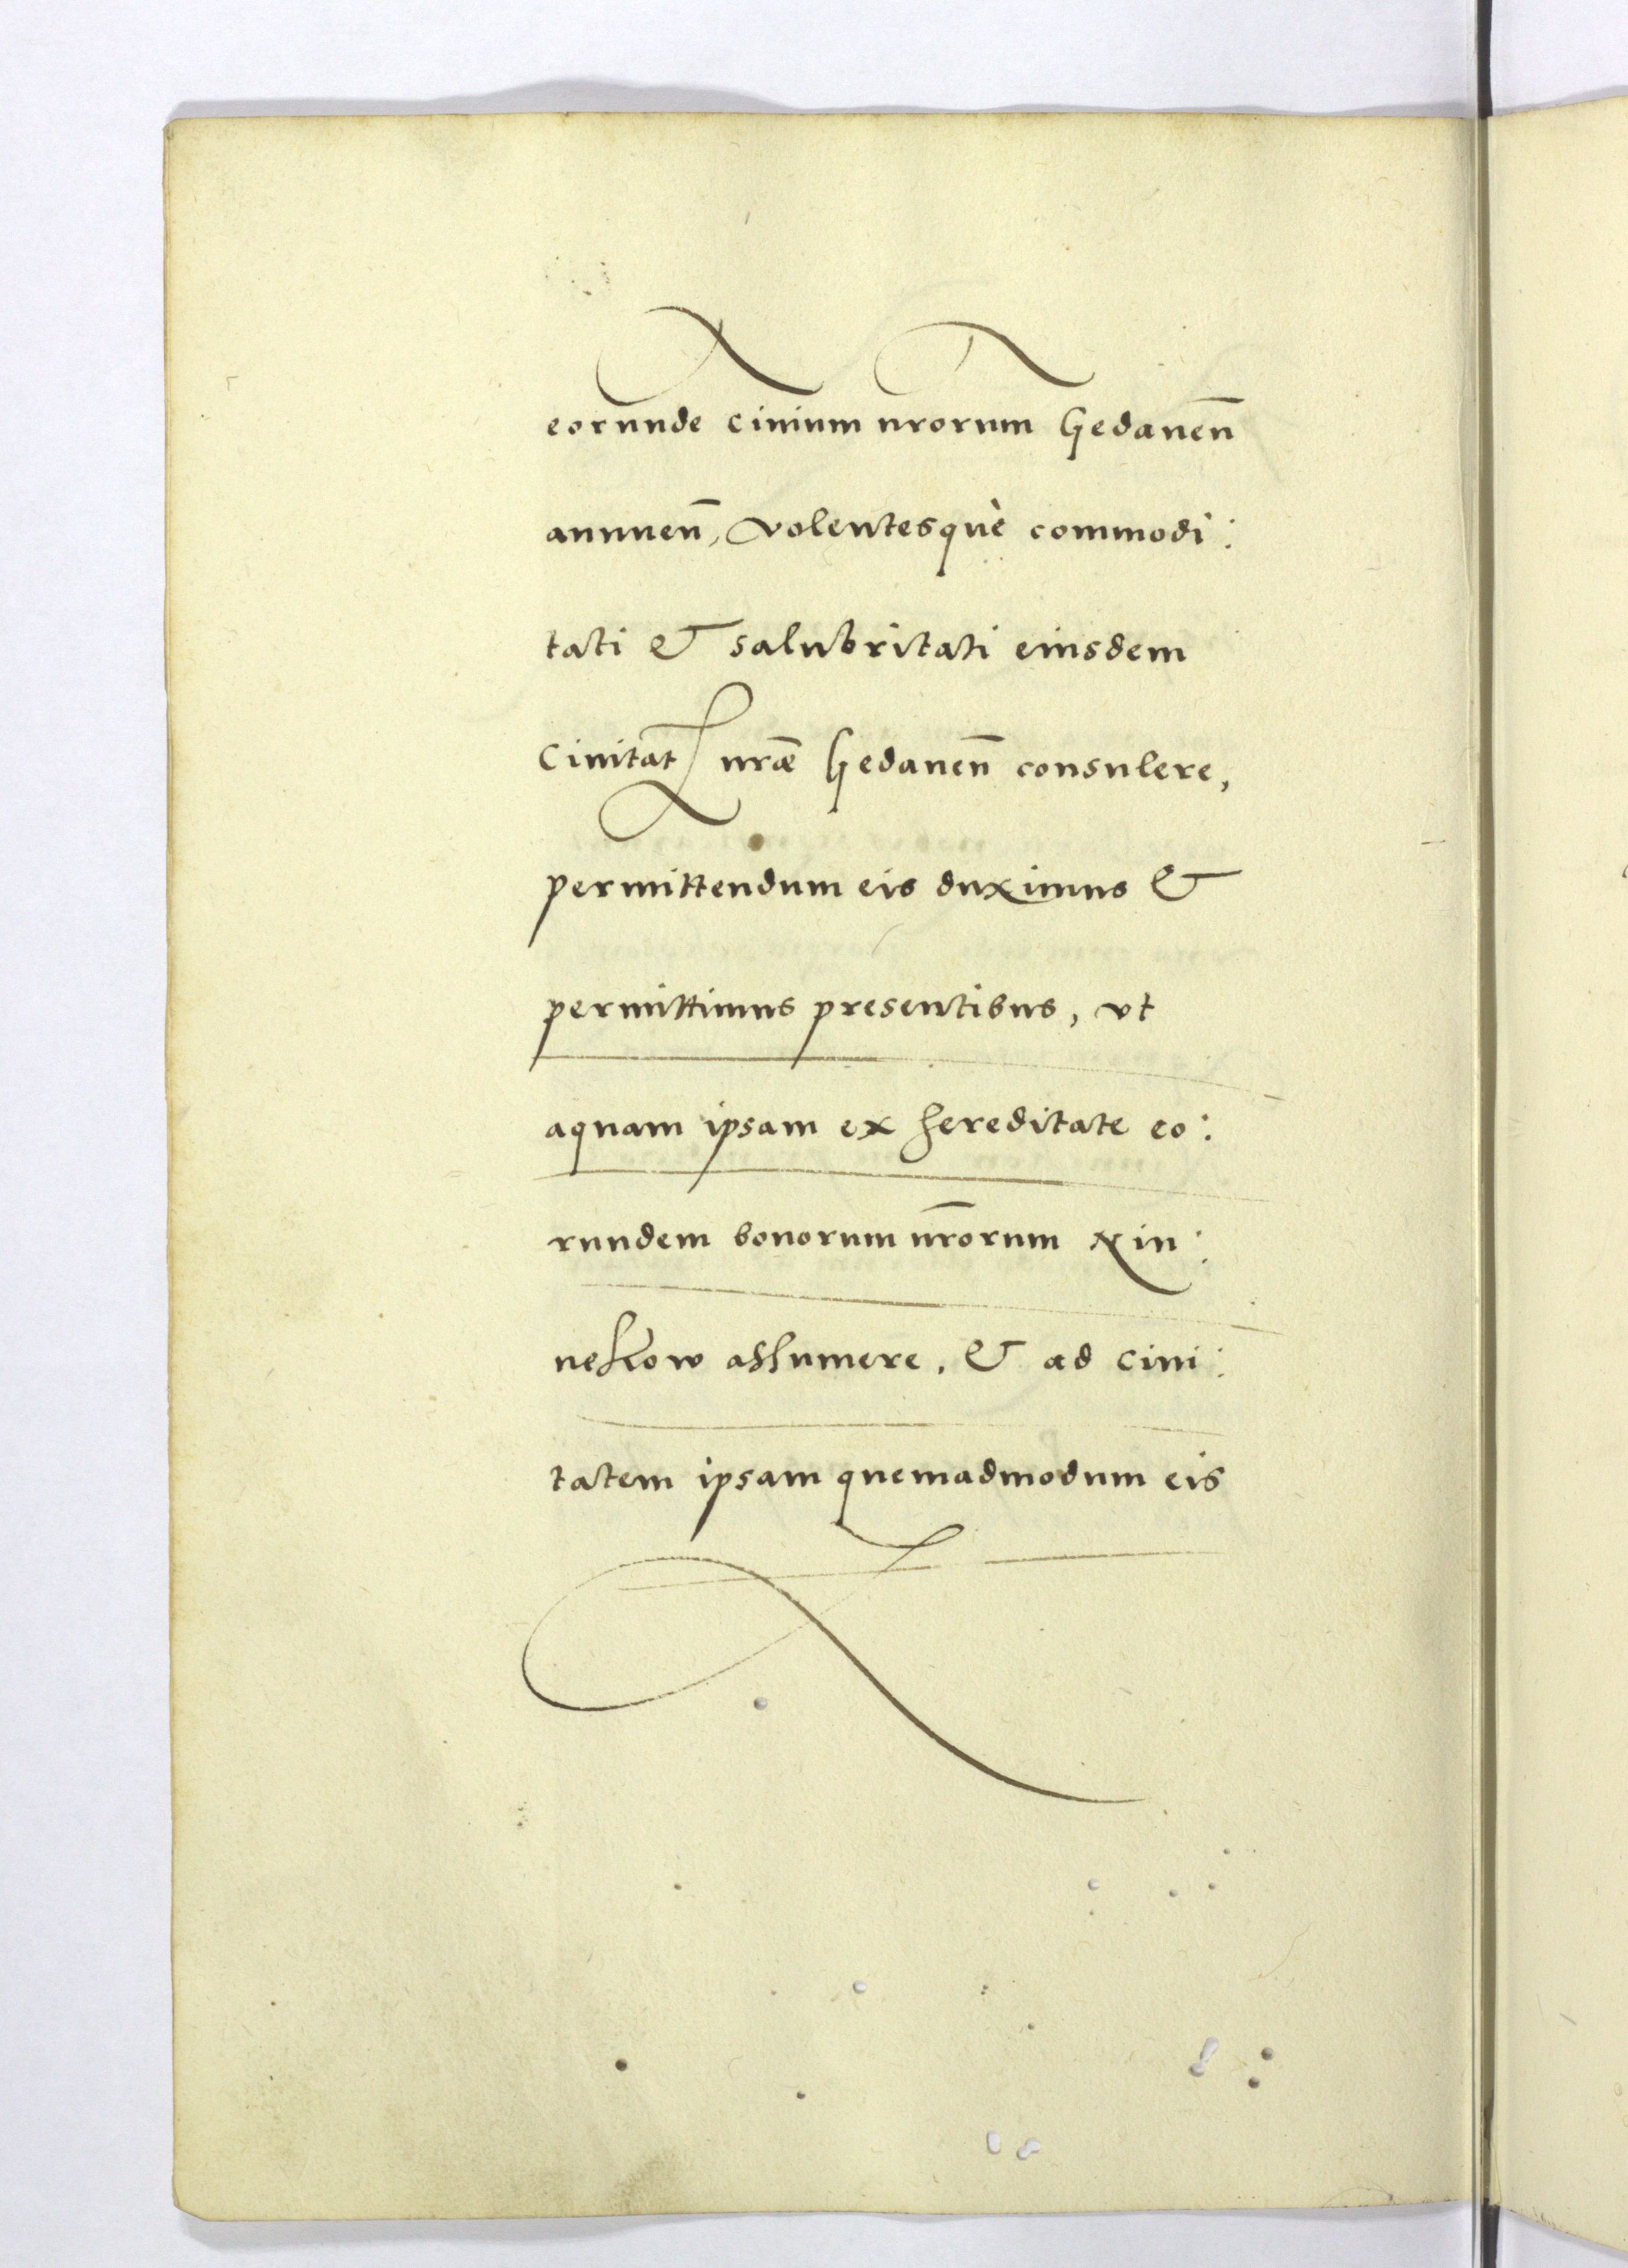 eorunde ciuium nrorum Gedaneñ
annueñ, volentesquè commodi:
tati & salubritati eiusdem
Ciuitat nræ Gedaneñ consulere,
permittendum eis duximus &
permittimus presentibus, vt
aquam ipsam ex hereditate eo:
rundem bonorum nrorum
assumere, & ad ciui:
tatem ipsam quemadmodum eis